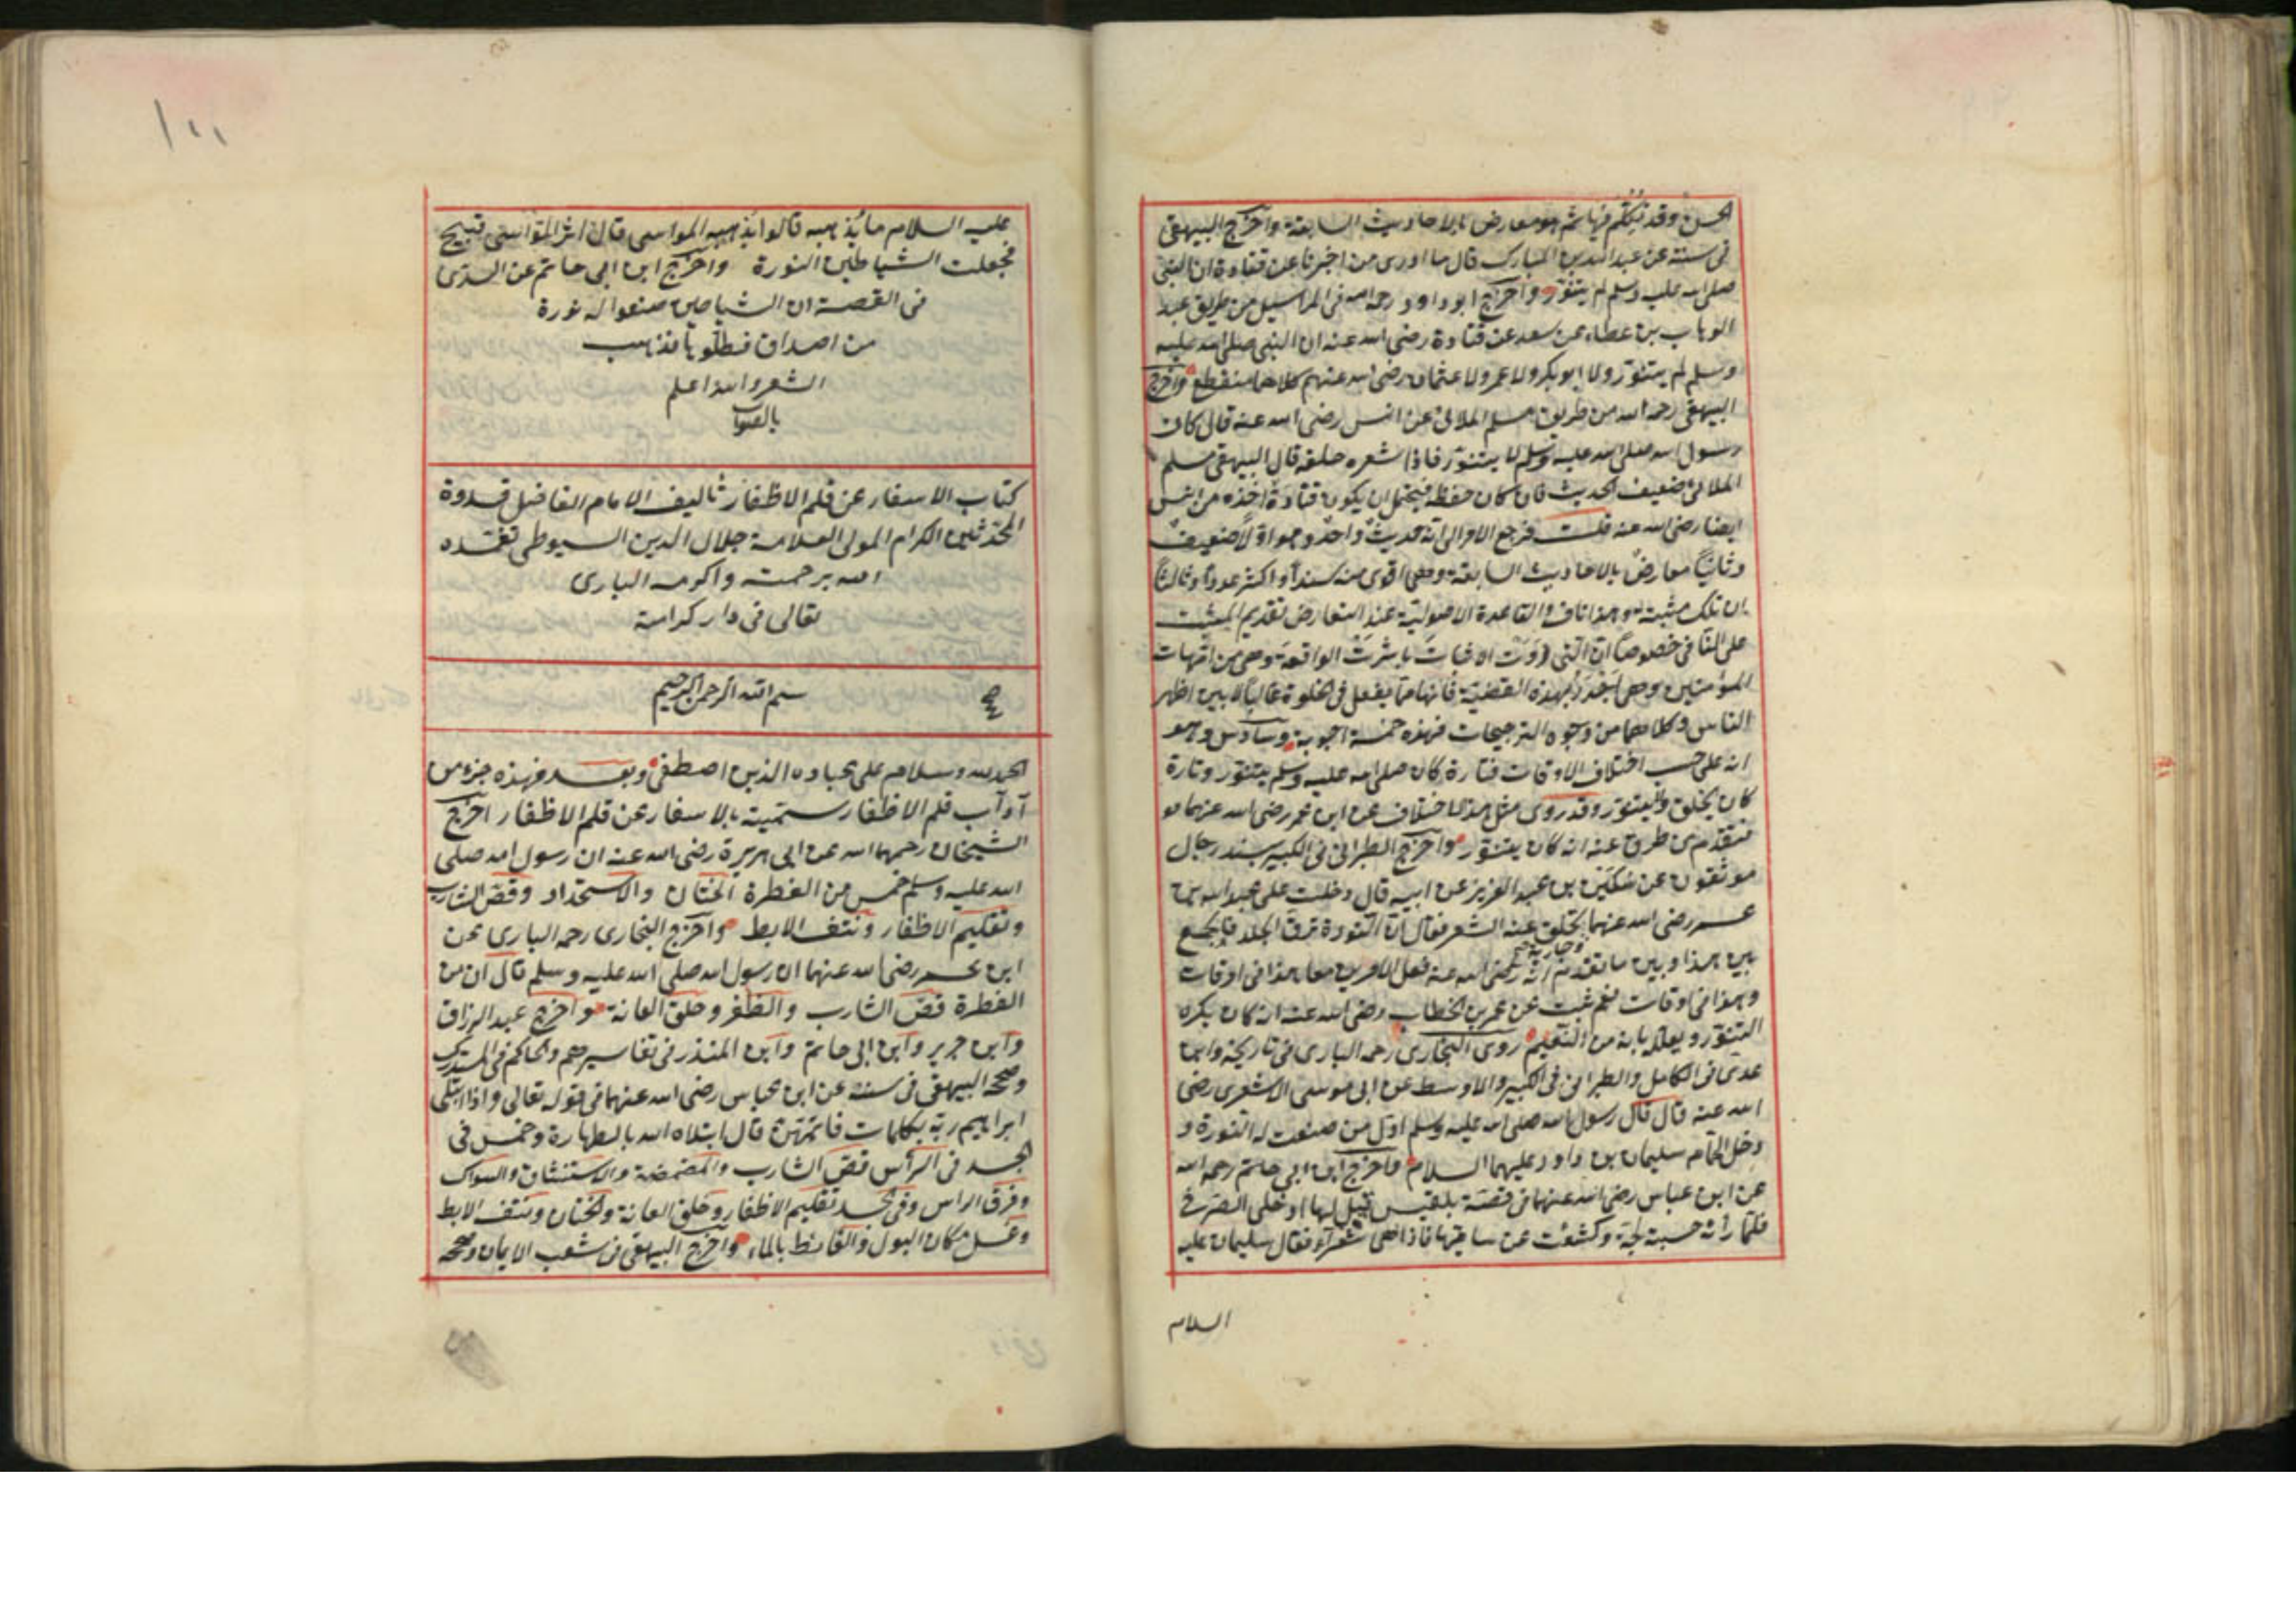 الحسن وقد تكلم فيها ثم هو معارض بالاحاديث السابقة واخرج البيهقى
فى سننه عن عبد الله بن المبارك قال ما ادرى من اخبرنا عن قتادة ان النبى
صلى الله عليه وسلم لم يتنور واخرج ابو داود رحمه الله فى المراسيل من طريق عبد
الوهاب بن عطاء عن سعيد عن قتادة رضى الله عنه ان النبى صلى الله عليه
وسلم لم يتنور ولا ابو بكر ولا عمر ولا عثمان رضى الله عنهم كلاهما منقطع واخرج
البيهقى رحمه الله من طريق مسلم الملائى عن انس رضى الله عنه قال كان
رسول الله صلى الله عليه وسلم لا يتنور فاذا شعره حلقه قال البيهقى مسلم
الملائى ضعيف الحديث فان كان حفظه فيحتمل ان يكون قتادة اخذه من انس
ايضا رضى الله عنه قلت فرجع الامر الى انه حديث واحد وهو اولا ضعيف
وثانيا معارض بالاحاديث السابقة وهى اقوى منه سندا واكثر عددا وثالثا
ان تلك مثبتة وهذا ناف والقاعدة الاصولية عند التعارض تقديم المثبت
على النافى خصوصا ان التى روت الاثبات باشرت الواقعة وهى من امهات
المؤمنين وهى اجدر بهذه القضية فانها مما يفعل فى الخلوة غالبا لا بين اظهر
الناس وكلاهما من وجوه الترجيحات فهذه خمسة اجوبة وسادس وهو
انه على حسب اختلاف الاوقات فتارة كان صلى الله عليه وسلم يتنور وتارة
كان يحلق ولا يتنور وقد روى مثل هذا الاختلاف عن ابن عمر رضى الله عنهما
فتقدم من طرق عنه انه كان يتنور واخرج الطبرانى فى الكبير بسند رجال
موثقون عن سكين بن عبد العزيز عن ابيه قال دخلت على عبد الله بن
عمر رضى الله عنهما وجاريته تحلق عنه الشعر فقال ان النورة ترق الجلد فالجمع
بين هذا وبين ما تقدم انه رضى الله عنه فعل الامرين معا هذا فى اوقات
وهذا فى اوقات نعم ثبت عن عمر بن الخطاب رضى الله عنه انه كان يكره
التنور ويعلله بانه من النعيم روى البخارى رحمه البارى فى تاريخه وابن
عدى فى الكامل والطبرانى فى الكبير والاوسط عن ابى موسى الاشعرى رضى
الله عنه قال قال رسول الله صلى الله عليه وسلم اول من صنعت له النورة و
دخل الحمام سليمان بن داود عليهما السلام واخرج ابن ابى حاتم رحمه الله
عن ابن عباس رضى الله عنهما فى قصة بلقيس قيل لها ادخلى الصرح
فلما رأته حسبته لجة وكشفت عن ساقيها فاذا هى شعراء فقال سليمان عليه
السلام
عليه السلام ما يذهبه قالوا يذهبه المواسى قال اثر المواسى قبيح
فجعلت الشياطين النورة واخرج ابن ابى حاتم عن السدى
فى القصة ان الشياطين صنعوا له نورة
من اصداف فطلوها فذهب
الشعر والله اعلم
بالصواب
كتاب الاسفار عن قلم الاظفار تاليف الامام الفاضل قدوة
المحدثين الكرام المولى العلامة جلال الدين السيوطى تغمده
الله برحمته واكرمه البارى
تعالى فى دار كرامته
بسم الله الرحمن الرحيم
الحمد لله وسلام على عباده الذين اصطفى وبعد فهذه جزء من
آداب قلم الاظفار سميته بالاسفار عن قلم الاظفار اخرج
الشيخان رحمهما الله عن ابى هريرة رضى الله عنه ان رسول الله صلى
الله عليه وسلم خمس من الفطرة الختان والاستحداد وقص الشارب
وتقليم الاظفار ونتف الابط واخرج البخارى رحمه البارى عن
ابن عمر رضى الله عنهما ان رسول الله صلى الله عليه وسلم قال ان من
الفطرة قص الشارب والظفر وحلق العانة واخرج عبد الرزاق
وابن جرير وابن ابى حاتم وابن المنذر فى تفاسيرهم والحاكم فى المستدرك
وصححه البيهقى فى سننه عن ابن عباس رضى الله عنهما فى قوله تعالى واذ ابتلى
ابراهيم ربه بكلمات فاتمهن قال ابتلاه الله بالطهارة وخمس فى
الجسد فى الرأس قص الشارب والمضمضة والاستنشاق والسواك
وفرق الراس وفى الجسد تقليم الاظفار وحلق العانة والختان ونتف الابط
وغسل مكان البول والغائط بالماء واخرج البيهقى فى شعب الايمان وصححه